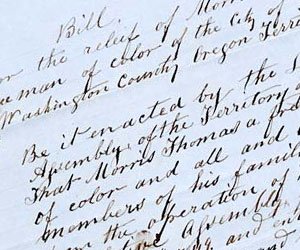 Bill.
the relief of Morr
man of color of the City of
Washington County Oregon Terri
Be it enacted by the
Assembly of the Territory
That Morris Thomas a free
of color and all and
members of his famil
the operation of
Assembly
and